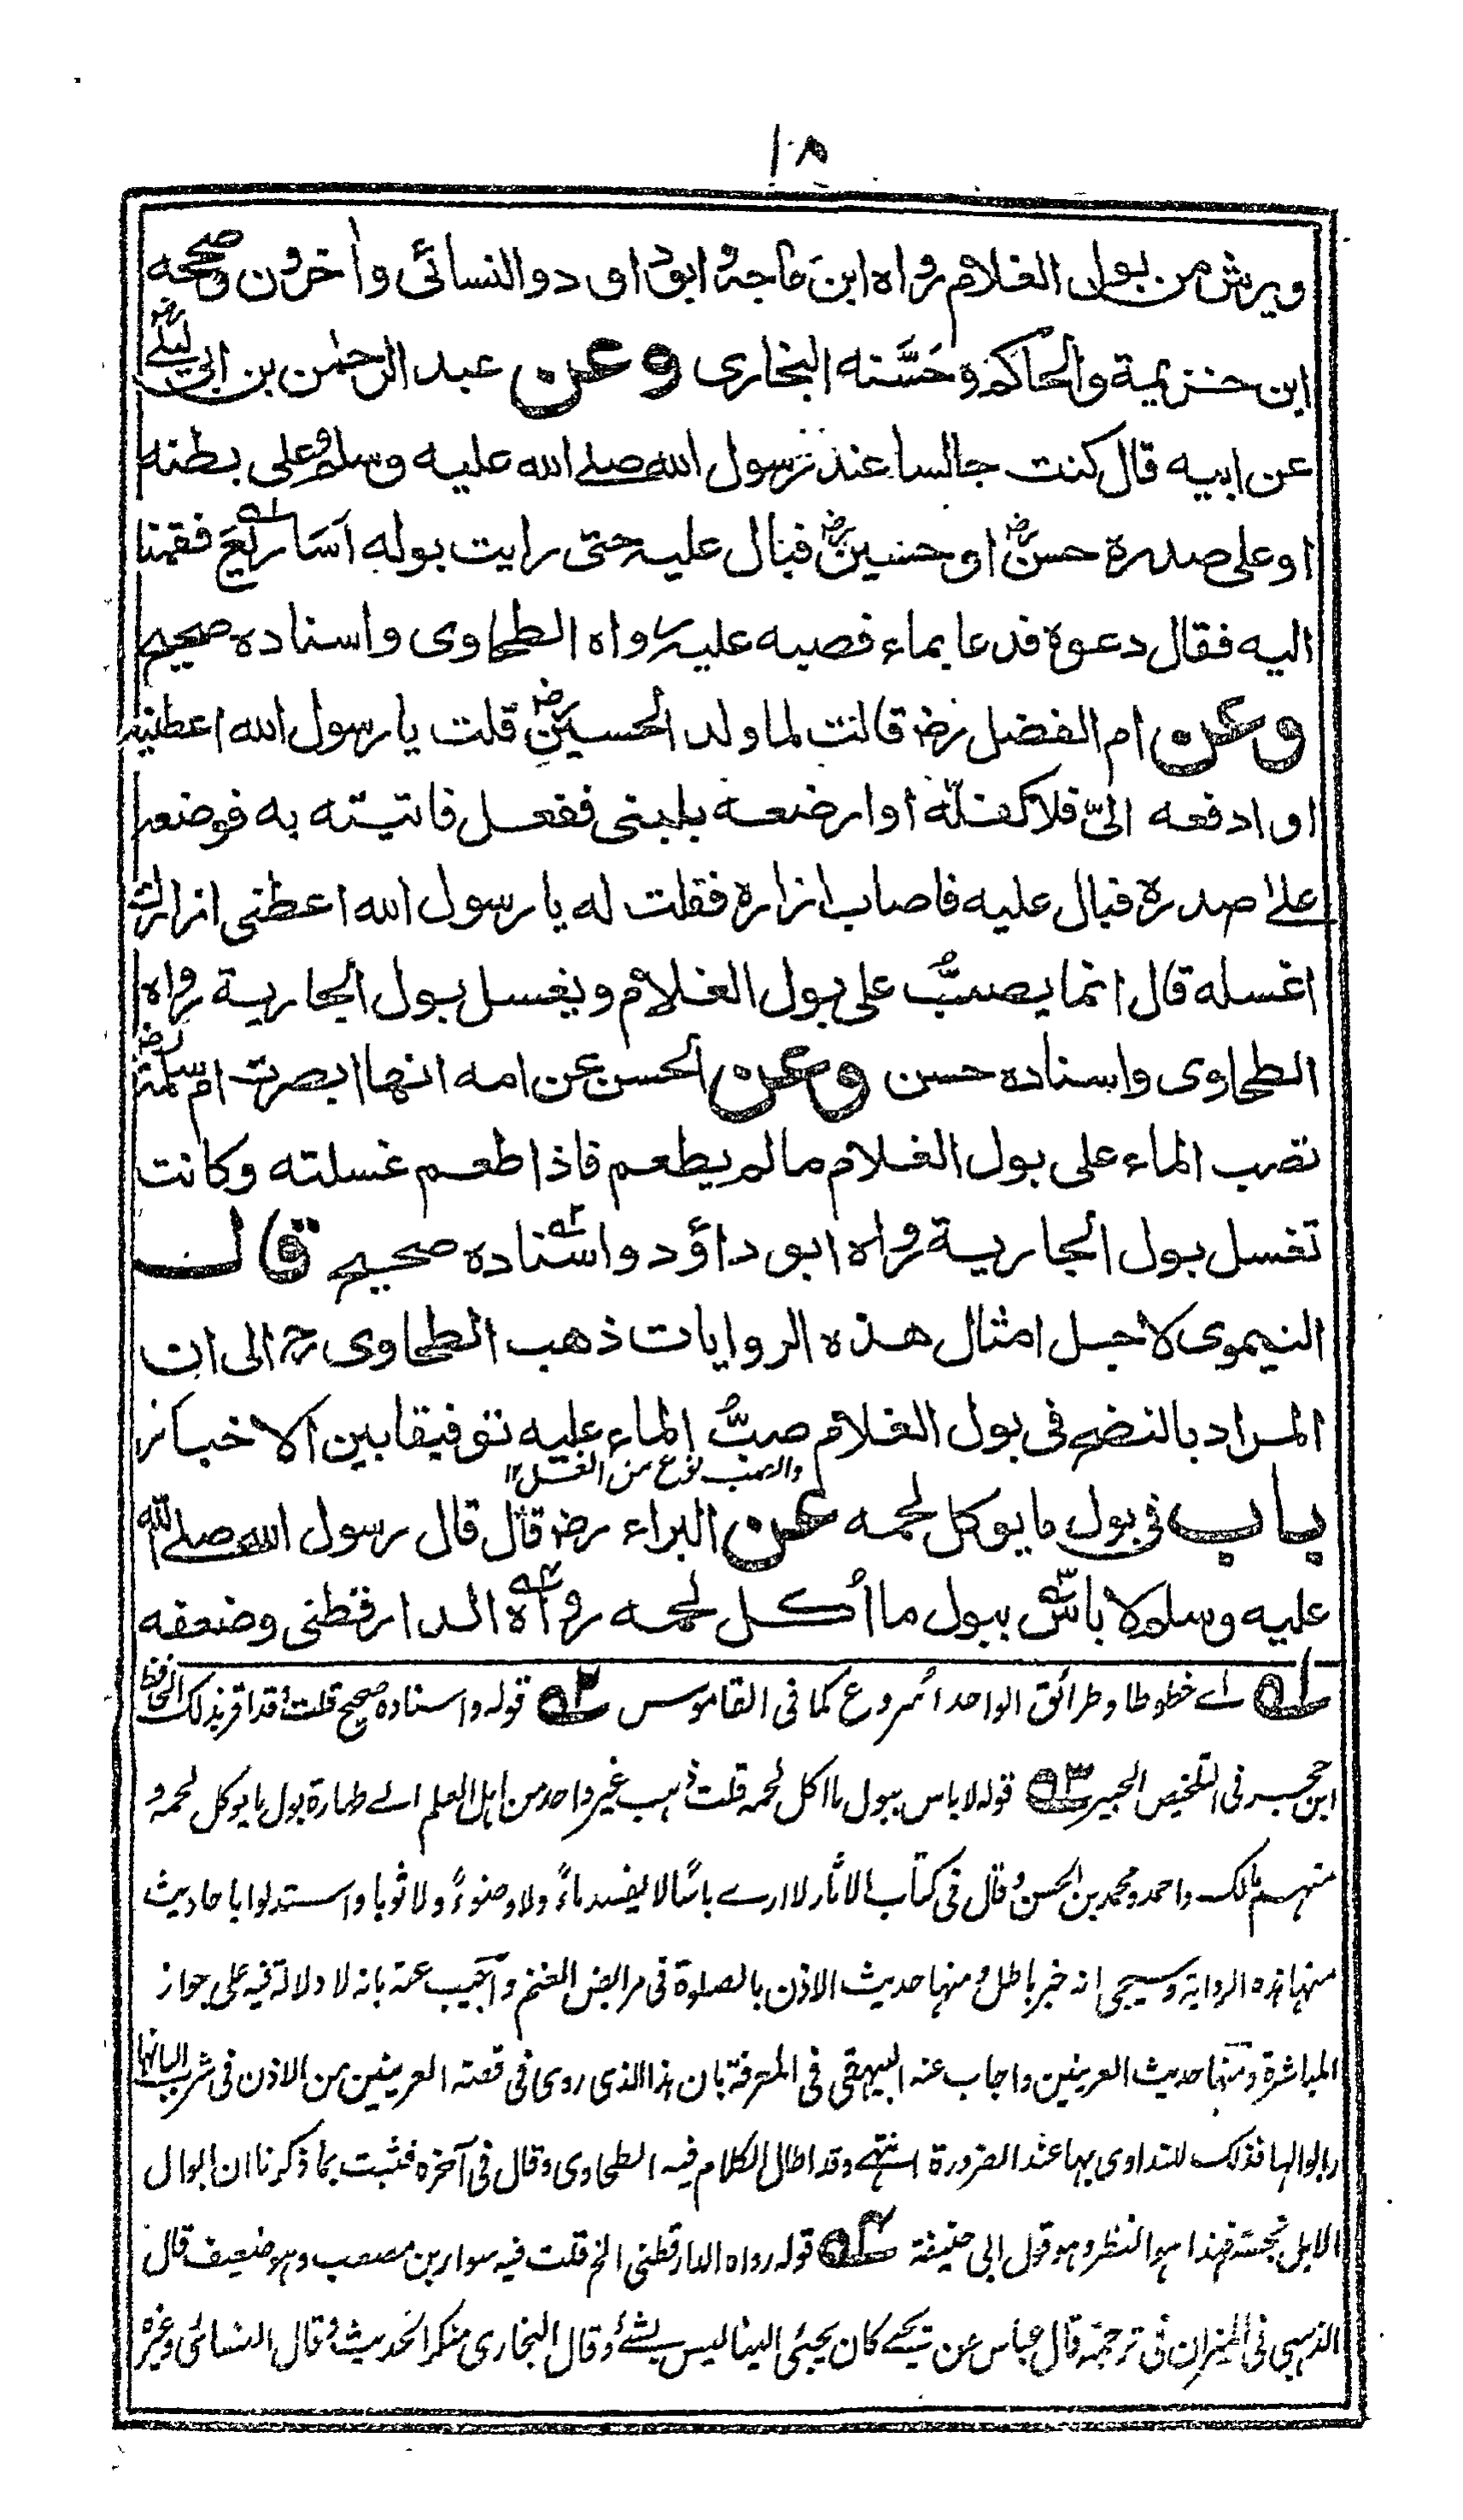 ١٨
ويرش من بول الغلام رواه ابن ماجة وابوداود والنسائى واخرون وصححه
ابن خزيمة والحاكم وحَسَّنه البخارى وعن عبد الرحمٰن بن ابى ليلےٰ رض
عن ابيه قال كنت جالسا عند رسول الله صلے الله عليه وسلم وعلى بطنه
او على صدره حسن رض او حسين رض فبال عليه حتى رايت بوله اَسَارِيْعَ ۱ه فقمنا
اليه فقال دعوه فدعا بماء فصبه عليه رواه الطحاوى واسناده صحيح
وعن ام الفضل رض قالت لما ولد الحسين رض قلت يا رسول الله اعطنيه
او ادفعه الىّ فلاكفلّه او ارضعه بلبنى ففعل فاتيته به فوضعه
علےٰ صدره فبال عليه فاصاب ازاره فقلت له يا رسول الله اعطنى ازارك
اغسله قال انما يصبُّ على بول الغلام ويغسل بول الجارية رواه
الطحاوى واسناده حسن وعن الحسن عن امه انها ابصرت ام سلمة رض
تصب الماء على بول الغلام ما لم يطعم فاذا طعم غسلته وكانت
تغسل بول الجارية رواه ابو داؤد واسناده ۲ه صحيح قال
النيموى لاجل امثال هذه الروايات ذهب الطحاوى رح الى ان
المراد بالنضح فى بول الغلام صبُّ الماء عليه توفيقا بين الاخبار
والصب نوع من الغسل ١٢
باب فى بول ما يوكل لحمه عن البراء رض قال قال رسول الله صلے الله
عليه وسلم لا باس ۳ه ببول ما اُكل لحمه رواه ۴ه الدارقطنى وضعفه
۱ه اے خطوطا وطرائق الواحد اُسروع كما فى القاموس ۲ه قوله واسناده صحيح قلت قد اقر بذلك الحافظ
ابن حجر فى التلخيص الحبير ۳ه قوله لا باس ببول ما اكل لحمه قلت ذهب غير واحد من اهل العلم الے طهارة بول ما يوكل لحمه و
منهم مالك واحمد ومحمد بن الحسن وقال فى كتاب الاثار لا ارے باسًا لا يفسد ماءً ولا وضوءً ولا ثوبا واستدلوا باحاديث
منها هذه الرواية وسيجى انه خبر باطل ومنها حديث الاذن بالصلوة فى مرابض الغنم واجيب عنه بانه لا دلالة فيه على جواز
المباشرة ومنها حديث العرينين واجاب عنه البيهقى فى المعرفة بان هذا الذى روى فى قصة العرينين من الاذن فى شرب البانها
وابوالها فذلك للتداوى بها عند الضرورة انتهے وقد اطال الكلام فيه الطحاوى وقال فى آخره فثبت بما ذكرنا ان ابوال
الابل نجسة فهذا هو النظر وهو قول ابى حنيفة ۴ه قوله رواه الدارقطنى الخ قلت فيه سوار بن مصعب وهو ضعيف قال
الذهبى فى الميزان فى ترجمته قال عباس عن يحيے كان يجيئ الينا ليس بشئ وقال البخارى منكر الحديث وقال النسائى وغيره